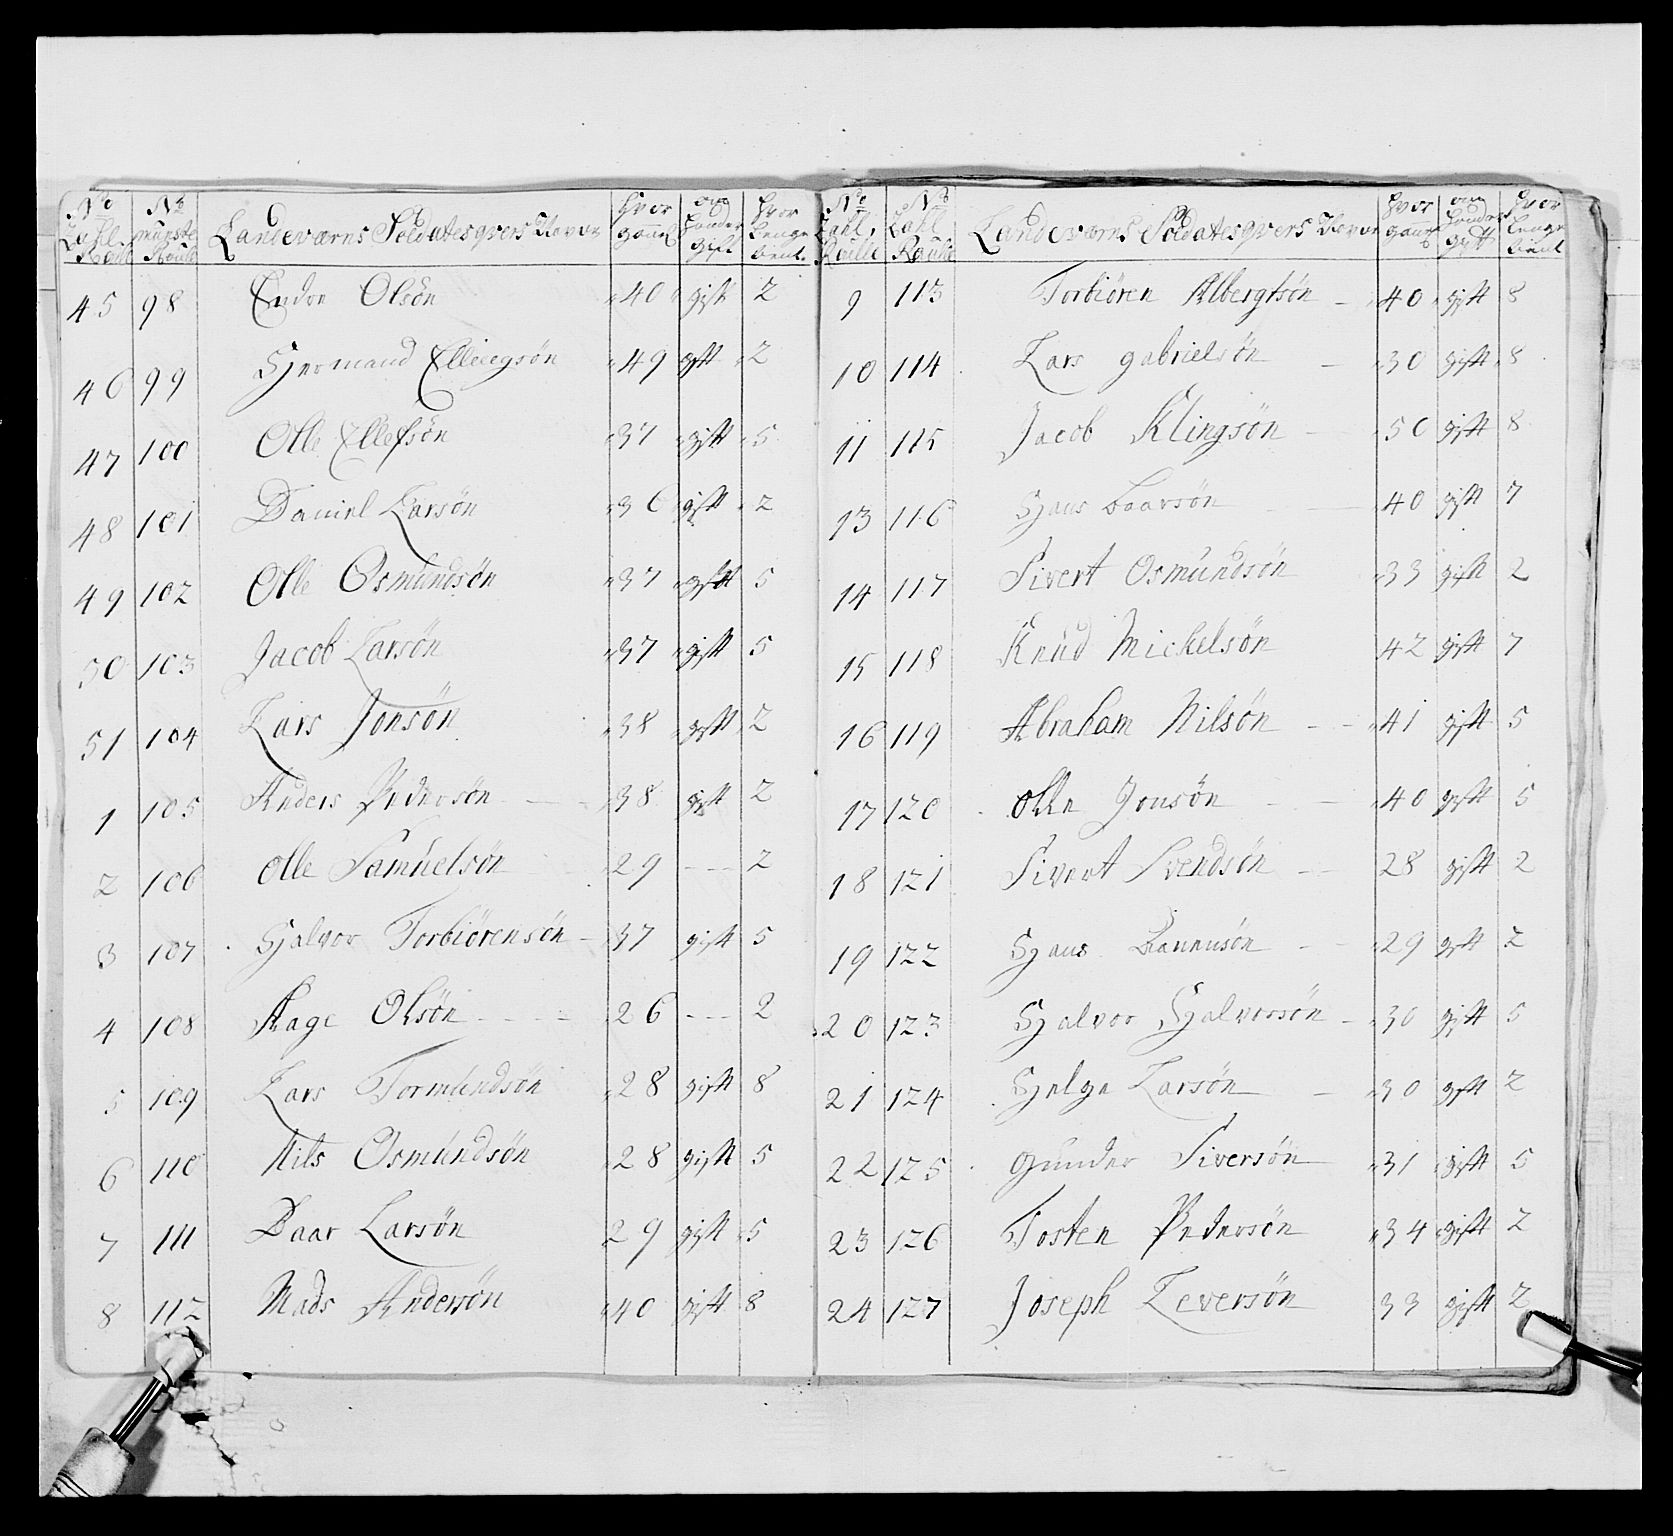 No Zahl Rolle | No munster Roulle | Landeværns Soldatesgvers Navne | hvor gamel | om hander gift | hvor lenge tient
45 98 Endre Olsön 40 gift 2
46 99 Hermand Ellingsön 49 gift 2
47 100 Olle Ellefsön 37 gift 5
48 101 Daniel Larsön 36 gift 2
49 102 Olle Osmundsön 37 gift 5
50 103 Jacob Larsön 37 gift 5
51 104 Lars Jonsön 38 gift 2
1 105 Anders Pedersön 38 gift 2
2 106 Olle Samuelsön 29 --- 2
3 107 Halvor Torbiörensön 37 gift 5
4 108 Aage Olsön 26 --- 2
5 109 Lars Tormundsön 28 gift 8
6 110 Nils Osmundsön 28 gift 5
7 111 Baar Larsön 29 gift 5
8 112 Mads Andersön 40 gift 8
No Zahl Roulle | No Zahl Roulle | Landeværns Soldatesgvers Navne | hvor gamel | om hander gift | hvor lenge tient
9 113 Torbiören Albergtsön 40 gift 8
10 114 Lars gabrielsön 30 gift 8
11 115 Jacob Klingsön 50 gift 8
13 116 Hans Baarsön 40 gift 7
14 117 Sivert Osmundsön 33 gift 2
15 118 Knud Mickelsön 42 gift 7
16 119 Abraham Nilsön 41 gift 5
17 120 Olle Jonsön 40 gift 5
18 121 Sivert Svendsön 28 gift 2
19 122 Hans 29 gift 2
20 123 Halvor Halvorsön 30 gift 5
21 124 Helge Larsön 30 gift 2
22 125 gunder Siversön 31 gift 5
23 126 Tosten Pedersön 34 gift 2
24 127 Joseph Zeversön 33 gift 2